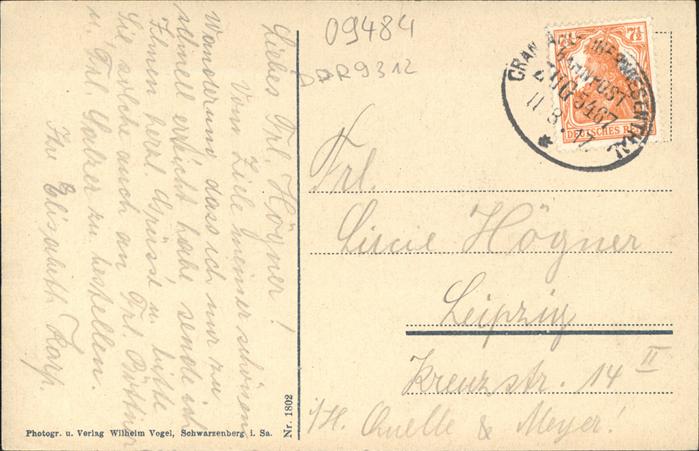 09484
DDR9312
Liebes Frl. Högner!
Vom Ziele meiner schönen
Wanderung dass ich nur zu
schnell erreicht habe sende ich
Ihnen herzl. Grüsse u. bitte
Sie solche auch an Frl. Böttner
u. Frl. zu bestellen.
Ihre Elisabeth Karp.
7½
DEUTSCHES REICH
BAHNPOST
ZUG 5467
11.8.17.
Frl.
Lucie Högner
Leipzig
Kreuzstr. 14 II
i/H. Quelle & Meyer!
Nr. 1802
Photogr. u. Verlag Wilhelm Vogel, Schwarzenberg i. Sa.